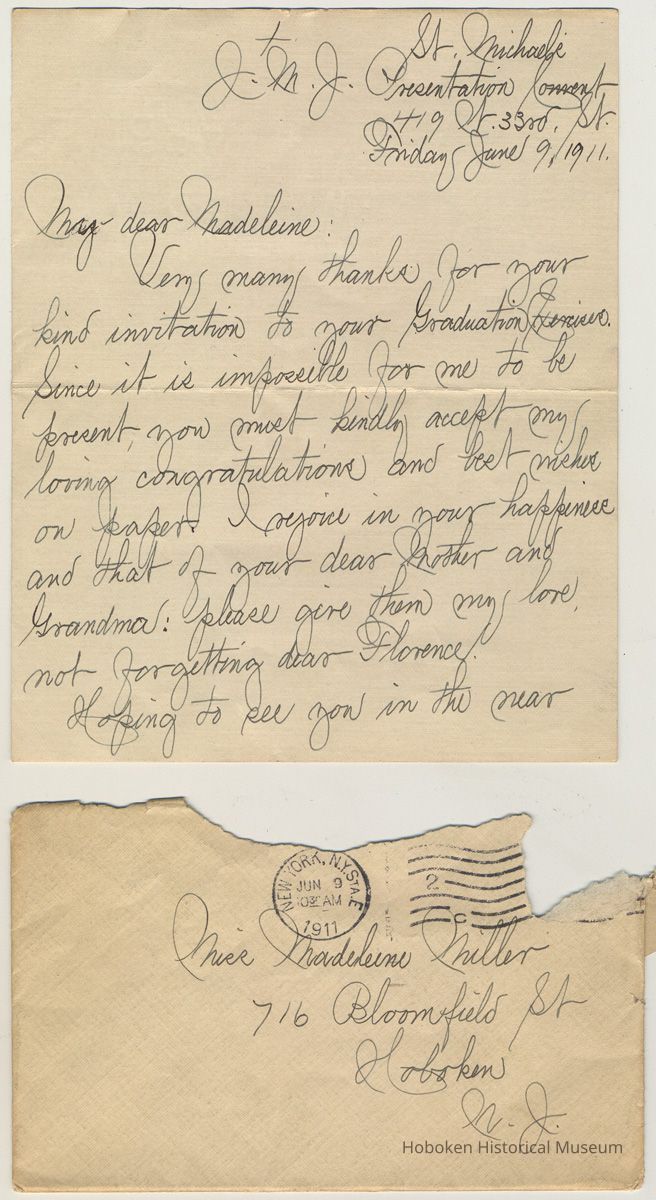 St. Michael's
J. M. J. Presentation Convent
419 W. 33rd. St.
Friday, June 9, 1911.
My dear Madeleine:
Very many thanks for your
kind invitation to your Graduation Exercises.
Since it is impossible for me to be
present, you must kindly accept my
loving congratulations and best wishes
on paper. I rejoice in your happiness
and that of your dear Mother and
Grandma: please give them my love,
not forgetting dear Florence.
Hoping to see you in the near
NEW YORK, N.Y. STA. E
JUN 9
AM
1911
2
C
Miss Madeleine Miller
716 Bloomfield St
Hoboken
N. J.
Hoboken Historical Museum